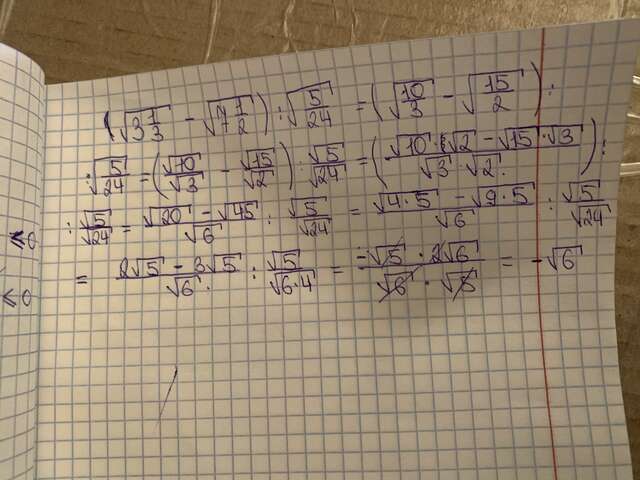 (√3 1/3 − √7 1/2) : √5/24 = (√10/3 − √15/2) :
: √5/24 = (√10/√3 − √15/√2) : √5/24 = (√10·√2 − √15·√3 / √3·√2) :
: √5/√24 = √20 − √45 / √6 : √5/√24 = √4·5 − √9·5 / √6 : √5/√24
= 2√5 − 3√5 / √6 : √5/√6·4 = −√5 · 2√6 / √6 · √5 = −√6
≤0
≤0